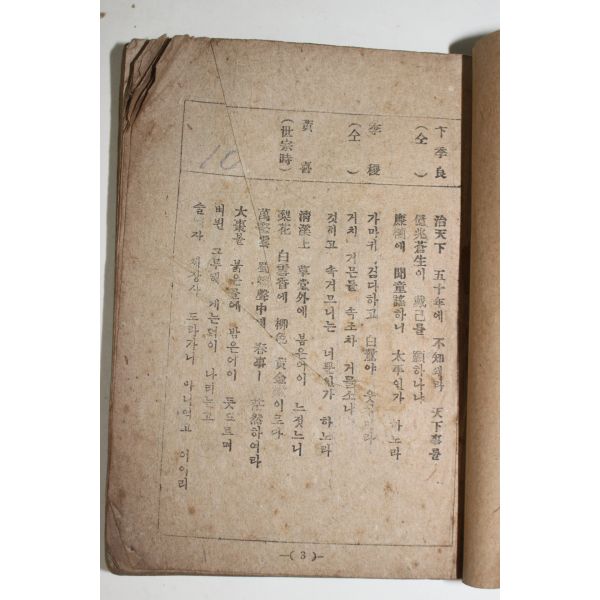 卞季良
(仝)
治天下 五十年에 不知왜라 天下事를
億兆蒼生이 戴己를 願하나냐
康衢에 聞童謠하니 太平인가 하노라
李稷
(仝)
가마귀 검다하고 白鷺야 웃지마라
거치 거믄들 속조차 거믈소냐
것희고 속거므니는 너뿐인가 하노라
黃喜
(世宗時)
淸溪上 草堂外에 봄은어이 느젓느니
梨花 白雪香에 柳色 黃金嫩이로다
萬壑雲 蜀魄聲中에 春事ㅣ 茫然하여라
大棗볼 붉은골에 밤은어이 뜻드르며
벼뷘 그루헤 게는어이 나리는고
술익자 체장사 도라가니 아니먹고 어이리
10
—( 3 )—